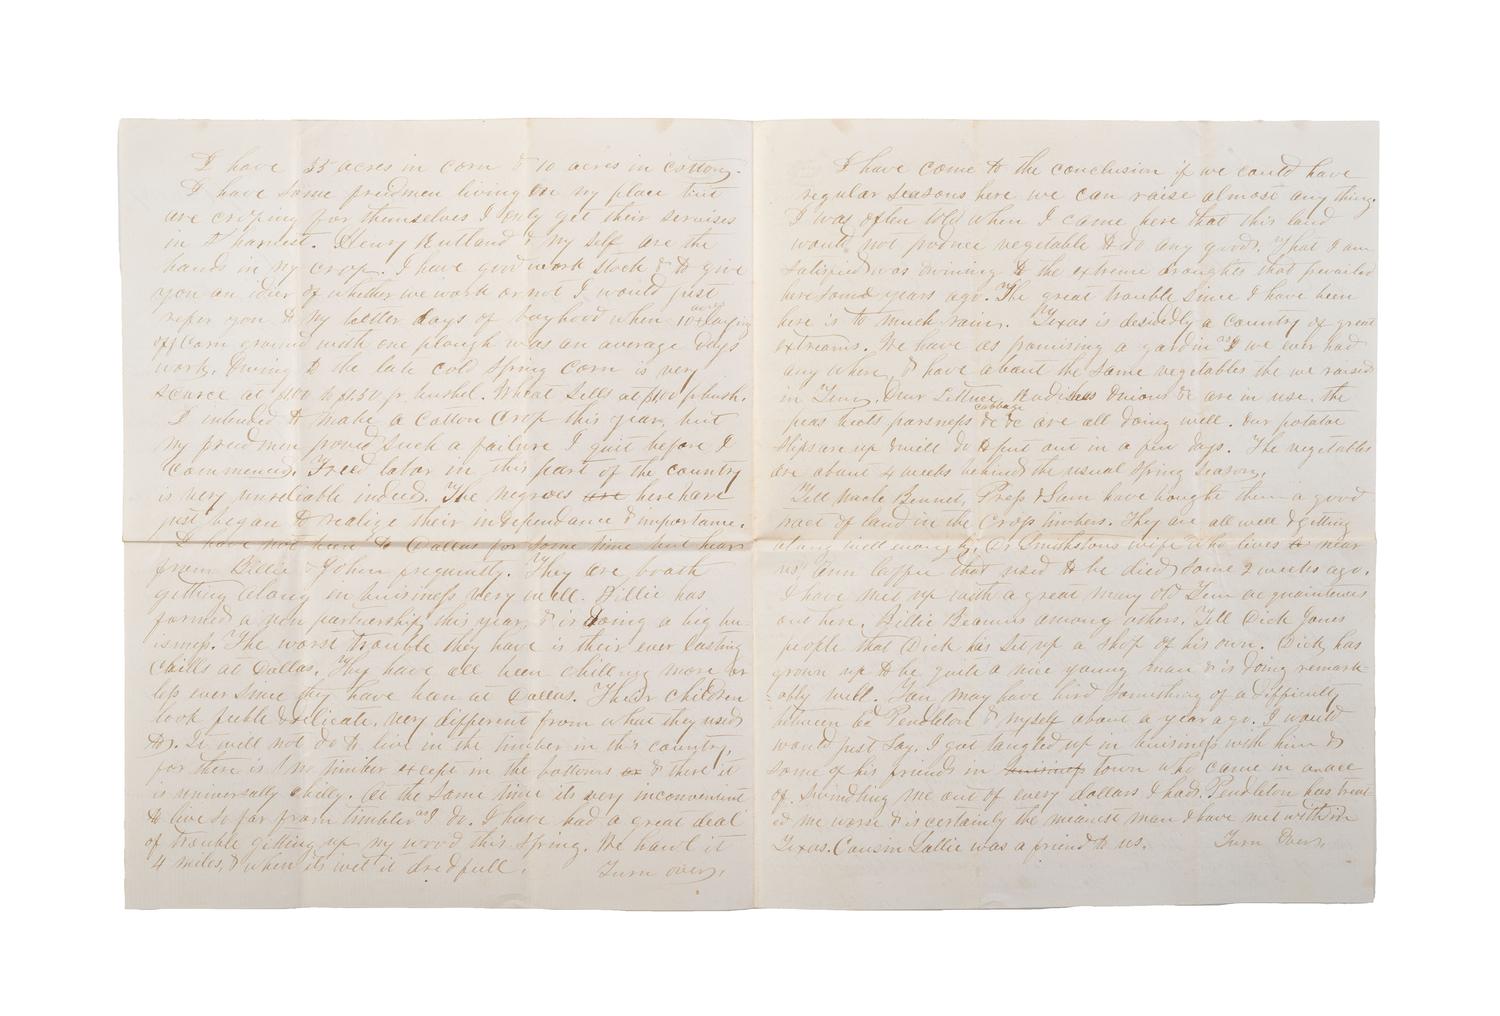 I have 35 acres in corn & 10 acres in cotton.
I have some freedmen living on my place but
are croping for themselves I only get their servises
in harvest. Henry Rutland & my self are the
hands in my crop. I have good work stock & to give
you an idier of whether we work or not I would just
refer you to my better days of boyhood when 10 acres laying
off corn ground with one plough was an average days
work. Owing to the late cold Spring corn is very
scarce at $1.00 to $1.50 pr. bushel. Wheat sells at $1.00 p. bush.
I intended to make a cotton crop this year, but
my freedmen proved such a failure I quit before I
commenced. Freed labor in this part of the country
is very unreliable indeed. The negroes are here have
just began to realize their independance & importance.
I have not been to Dallas for some time but hear
from Billie & John frequently. They are boath
getting along in business very well. Billie has
formed a new partnership this year, & is doing a big bu-
isness. The worst trouble they have is their ever lasting
chills at Dallas. They have all been chilling more or
less ever since they have ben at Dallas. Their children
look feeble & delicate, very different from what they used
to. It will not do to live in the timber in this country,
for there is no timber except in the bottoms or & there it
is universally chilly. At the same time its very inconvenient
to live so far from timber as I do. I have had a great deal
of trouble getting up my wood this Spring. We hawl it
4 miles, & when its wet it dredfull.
Turn over,
I have come to the conclusion if we could have
regular seasons here we can raise almost any thing.
I was often told when I came here that this land
would not produce vegetable to do any good. That I am
satisfied was owining to the extreme droughts that prevailed
here some years ago. The great trouble since I have been
here is to much rain. Texas is desidedly a country of great
extreams. We have as promising a gardin as I we ever had
any where, & have about the same vegetables the we raised
in Tenn. Our Lettuce, Radishes Onions &c are in use. the
peas beets parsneps cabbage &c &c are all doing well. our potatoe
slips are up & will do to put out in a few days. The vegetables
are about 4 weeks behind the usual Spring season.
Tell Uncle Bennet, Press & Sam have bought them a good
tract of land in the Cross timbers. They are all well & getting
along well enough. Dr Smithstons wife who lives to near
us, Ann that used to be died some 2 weeks ago.
I have met up with a great many old Tenn acquaintences
out here. Billie among others. Tell Dick Jones
people that Dick has set up a shop of his own. Dick has
grown up to be quite a nice young man & is doing remark-
ably well. You may have hird something of a difficulty
between Ed Pendleton & myself about a year ago. I would
would just say, I got tangled up in business with him &
some of his friends in business town who came in anace
of swindling me out of every dollars I had. Pendleton has treat
ed me worse & is certainly the meanest man I have met with in
Texas. Cousin Sallie was a friend to us.
Turn Over,